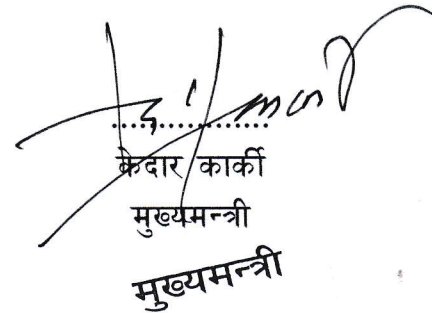 केदार कार्की
मुख्यमन्त्री
मुख्यमन्त्री